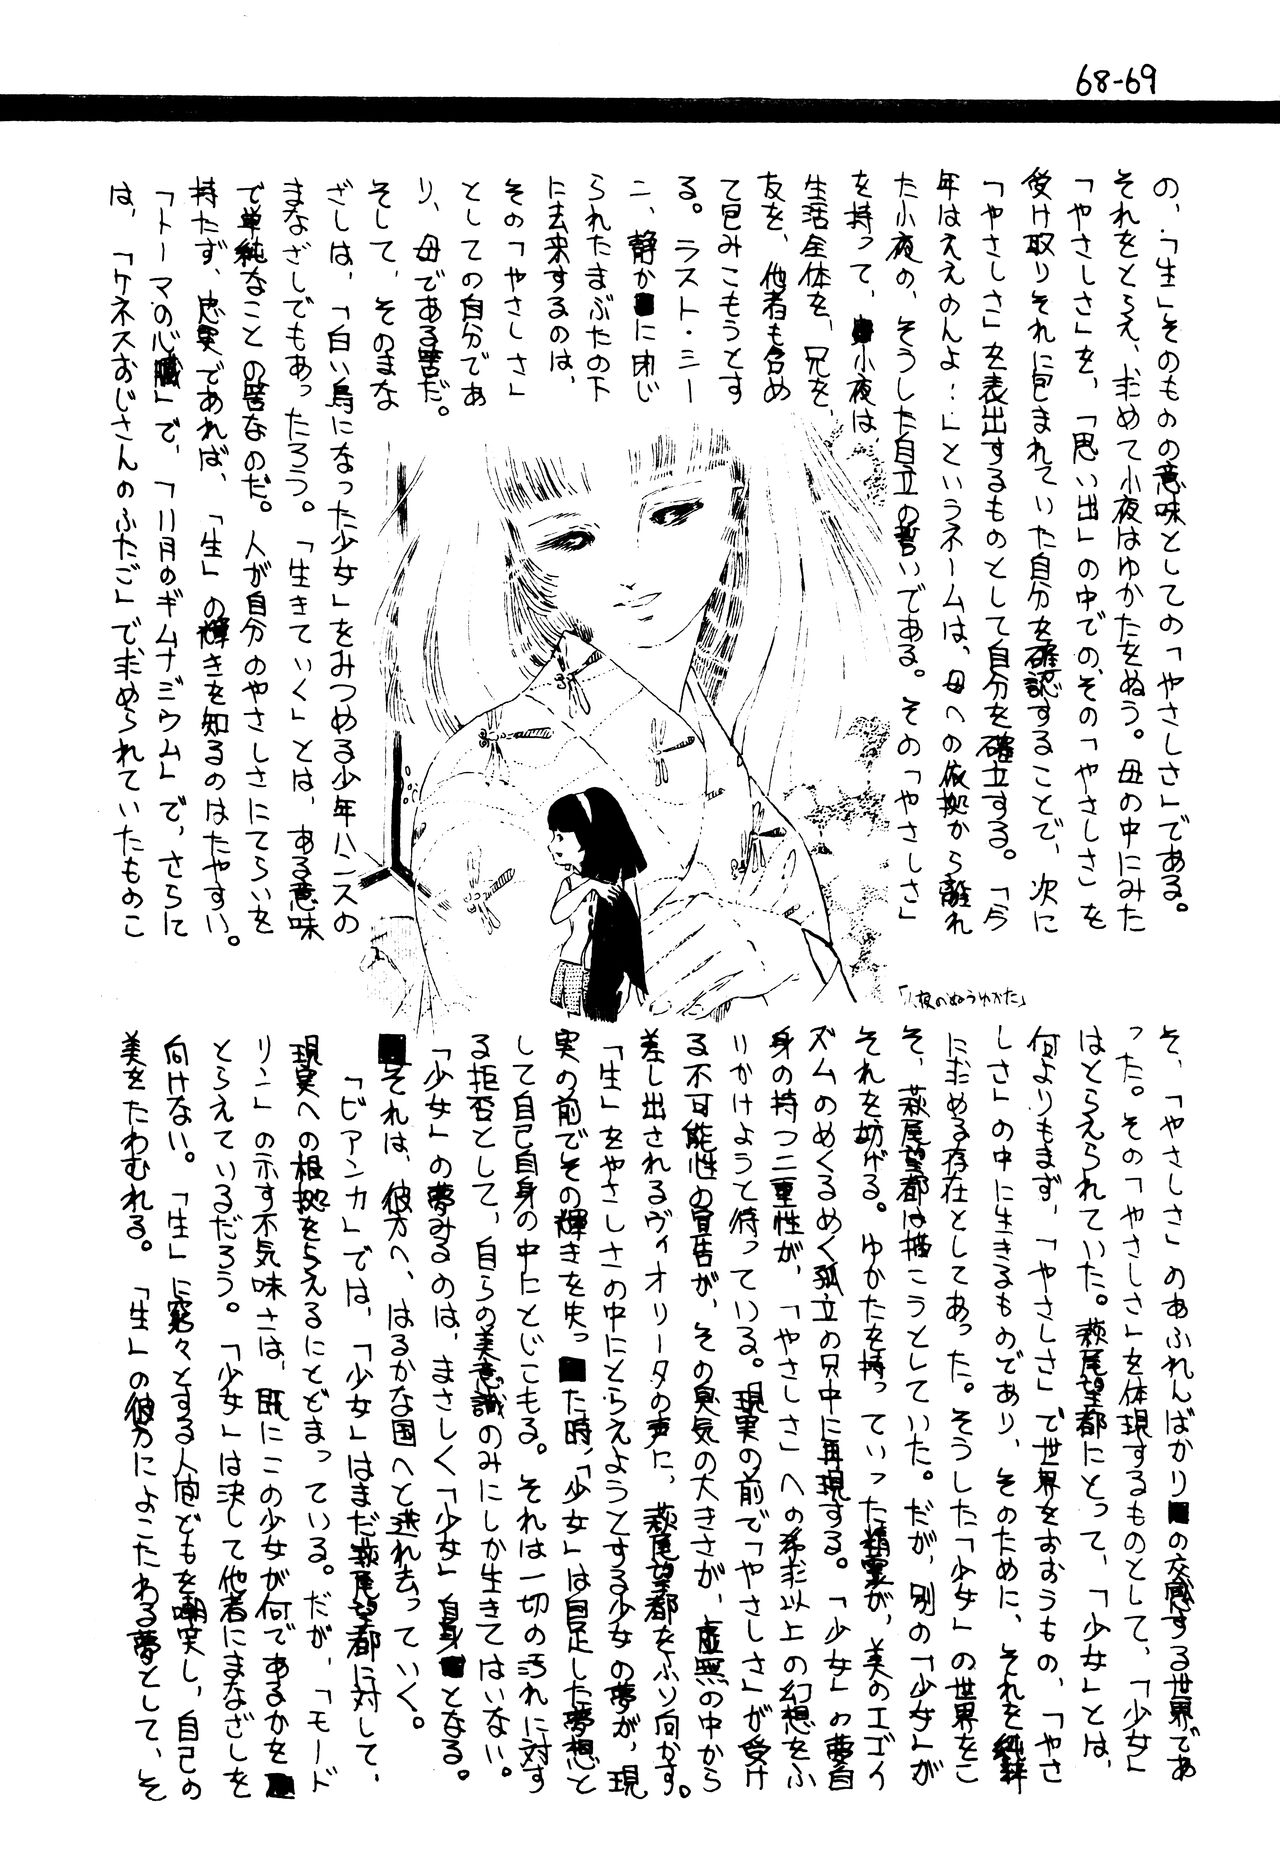 68-69
の、「生」そのものの意味としての「やさしさ」である。
それをとらえ、求めて小夜はゆかたをぬう。母の中にみた
「やさしさ」を、「思い出」の中での、その「やさしさ」を
受け取りそれに包まれていた自分を確認することで、次に
「やさしさ」を表出するものとして自分を確立する。「今
年はええのんよ…」というネームは、母への依拠から離れ
た小夜の、そうした自立の誓いである。その「やさしさ」
を持って、小夜は、
生活全体を、兄を、
友を、他者も含め
て包みこもうとす
る。ラスト・シー
ニ、静かに閉じ
られたまぶたの下
に去来するのは、
その「やさしさ」
としての自分であ
り、母である筈だ。
そして、そのまな
ざしは、「白い鳥になった少女」をみつめる少年ハンスの
まなざしでもあったろう。「生きていく」とは、ある意味
で単純なことの筈なのだ。人が自分のやさしさにてらいを
持たず、忠実であれば、「生」の輝きを知るのはたやすい。
「トーマの心臓」で、「11月のギムナジウム」で、さらに
は、「ケネスおじさんのふたご」で求められていたものこ
「小夜のぬうゆかた」
そ、「やさしさ」のあふれんばかりの交感する世界であ
った。その「やさしさ」を体現するものとして、「少女」
はとらえられていた。萩尾望都にとって、「少女」とは、
何よりもまず、「やさしさ」で世界をおおうもの、「やさ
しさ」の中に生きるものであり、そのために、それを純粋
に求める存在としてあった。そうした「少女」の世界をこ
そ、萩尾望都は描こうとしていた。だが、別の「少女」が
それを妨げる。ゆかたを持っていった精霊が、美のエゴイ
ズムのめくるめく孤立の只中に再現する。「少女」の夢自
身の持つ二重性が、「やさしさ」への希求以上の幻想をふ
りかけようと待っている。現実の前で「やさしさ」が受け
る不可能性の宣告が、その臭気の大きさが、虚無の中から
差し出されるヴィオリータの声に、萩尾望都をふり向かす。
「生」をやさしさの中にとらえようとする少女の夢が、現
実の前でその輝きを失った時、「少女」は自足した夢想と
して自己自身の中にとじこもる。それは一切の汚れに対す
る拒否として、自らの美意識のみにしか生きてはいない。
「少女」の夢みるのは、まさしく「少女」自身となる。
それは、彼方へ、はるかな国へと逃れ去っていく。
「ビアンカ」では、「少女」はまだ萩尾望都に対して、
現実への根拠を与えるにとどまっている。だが、「モード
リン」の示す不気味さは、既にこの少女が何であるかを
とらえているだろう。「少女」は決して他者にまなざしを
向けない。「生」に窮々とする人間どもを嘲笑し、自己の
美をたわむれる。「生」の彼方によこたわる夢として、そ